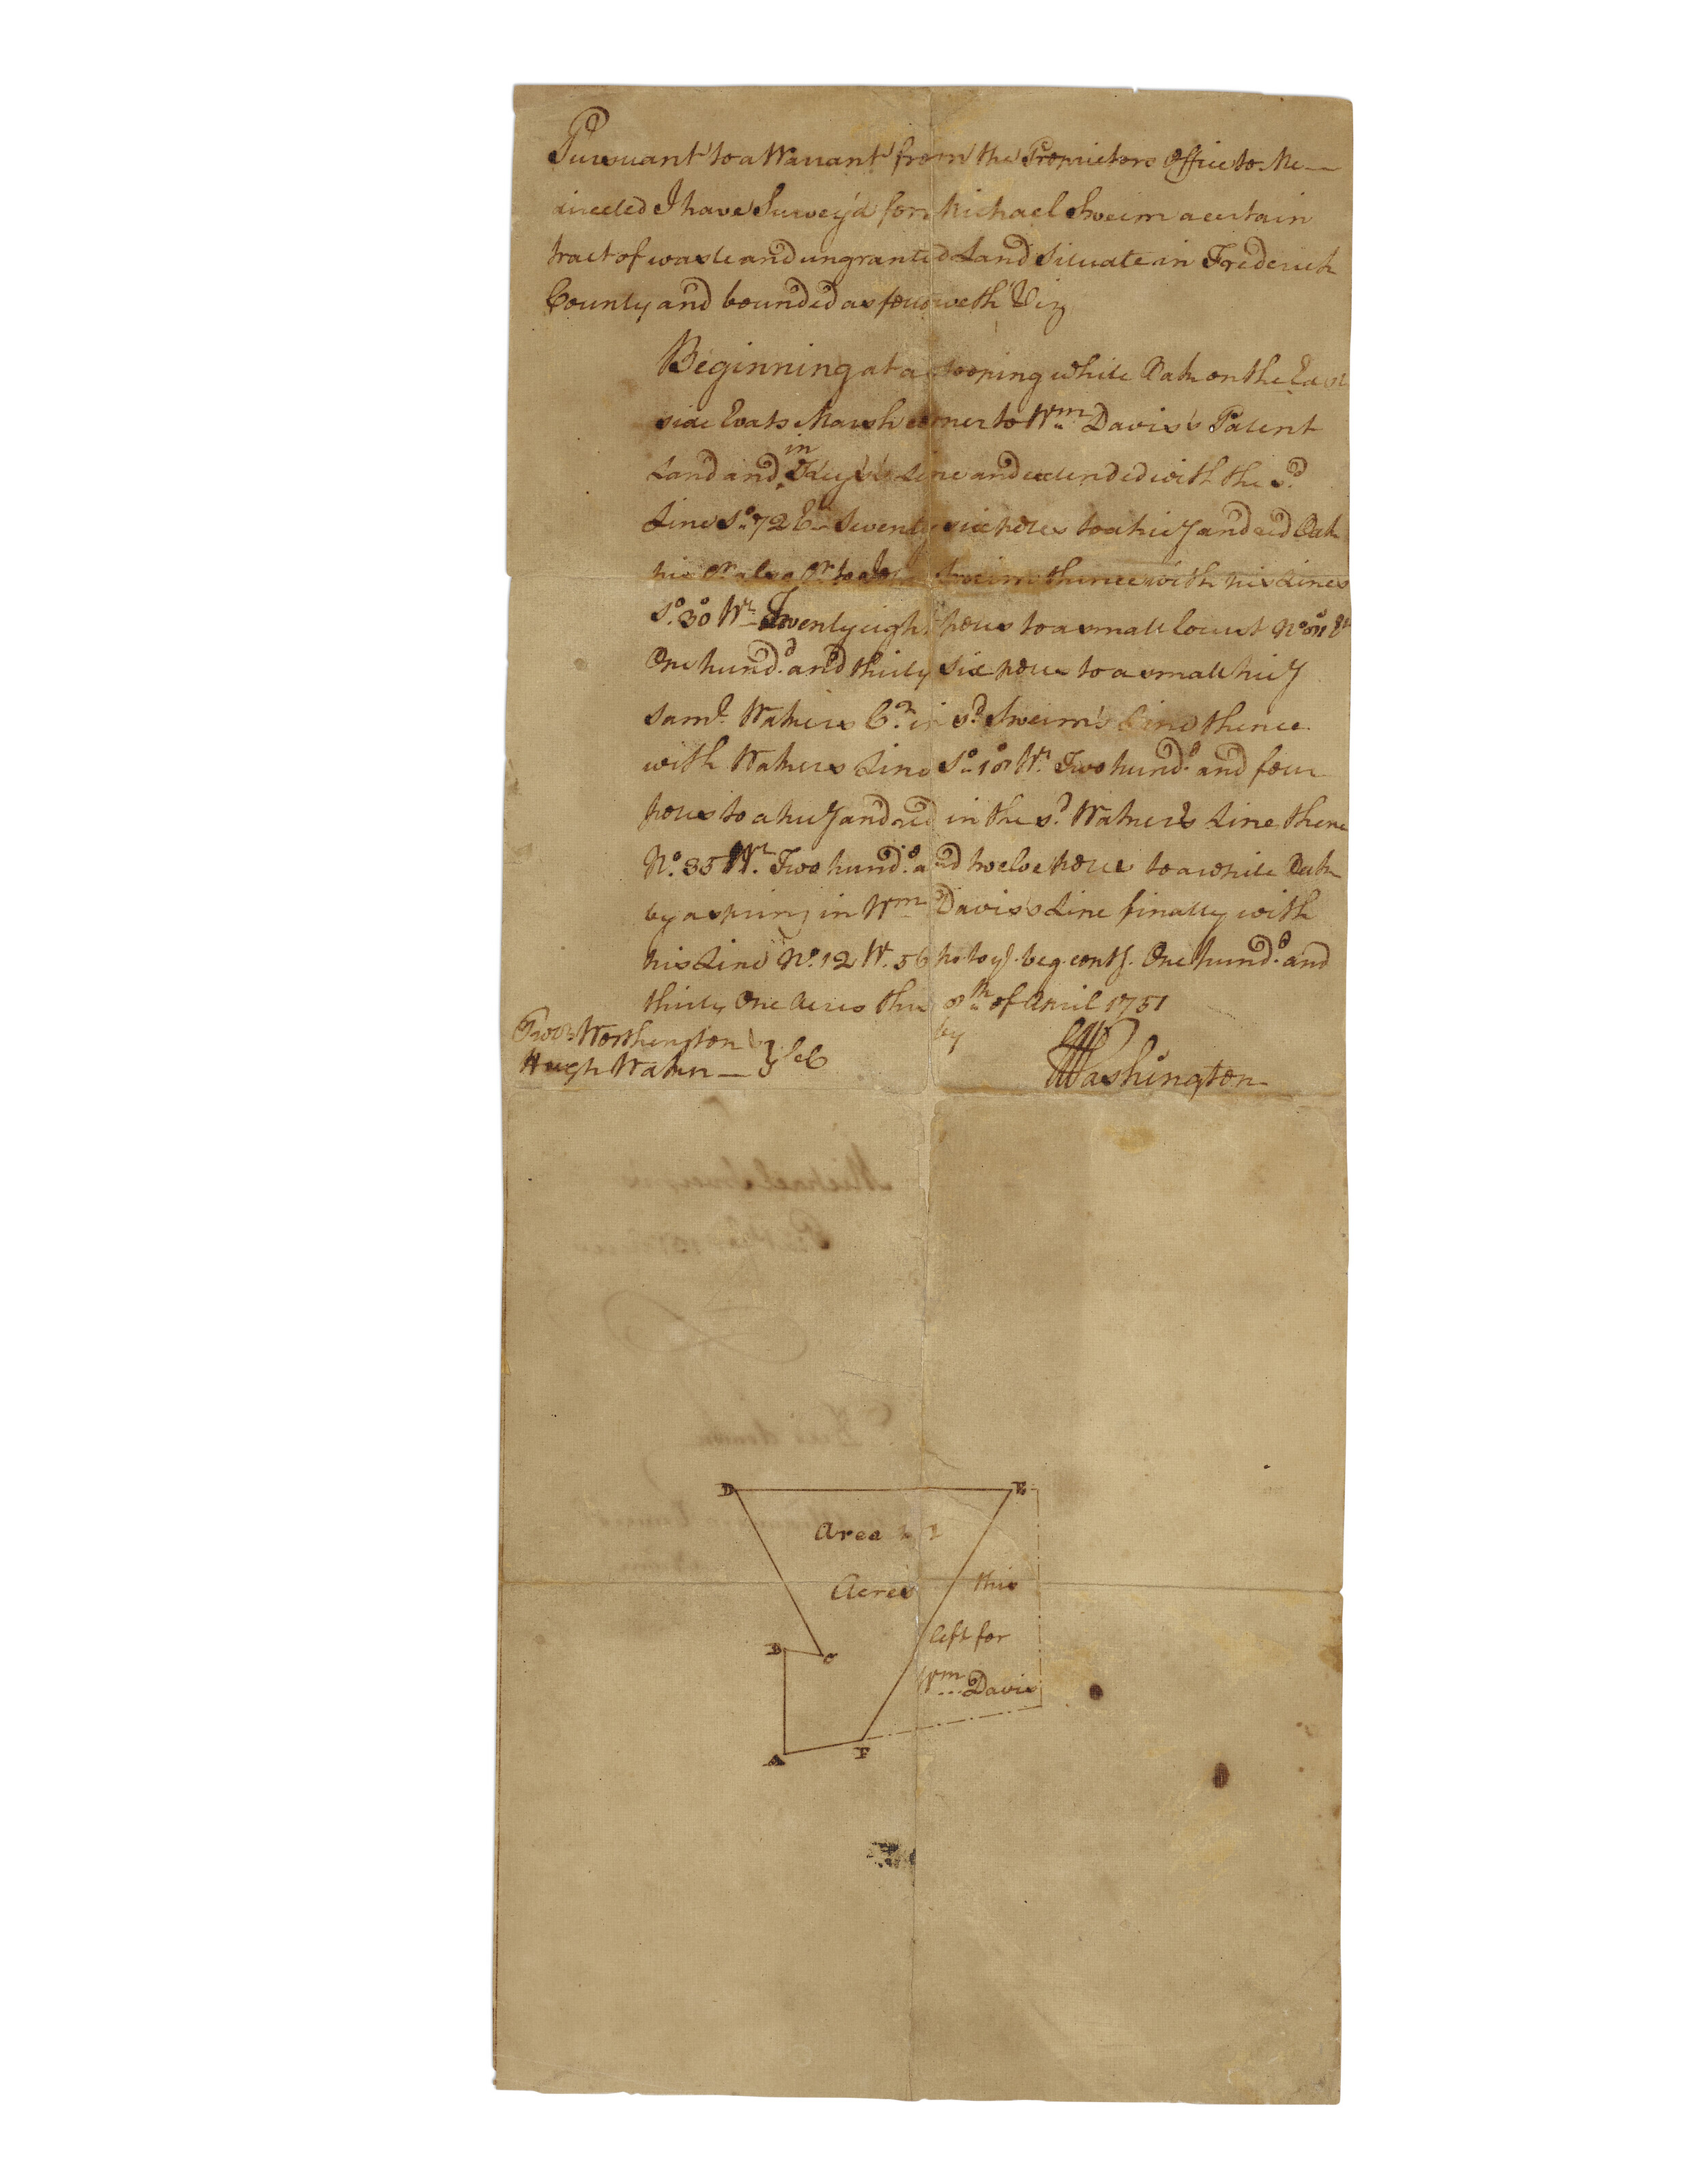 Pursuant to a Warrant from the Proprietors Office to Me —
directed I have Survey'd for Michael Sweim a certain
tract of waste and ungranted Land Situate in Frederick
County and bounded as followeth Viz
Beginning at a stooping white Oak on the East
side Evats Marsh corner to Wm Davis's Patent
in
Land and Line and extended with the sd
Line So 72 Et Seventy six poles to a hicy and red Oak
his Cr also Cr to Sweim thence with his Lines
So 30 Wt Twenty eight poles to a small locust No 31 Et
One hundd and thirty six poles to a small hicy
Saml Walkers Cr in sd Sweim's Line thence
with Walkers Line So 18 Wt Two hundd and four
poles to a hicy and red in the sd Walker's Line thence
No 35 Wt Two hundd and twelve poles to a white Oak
by a spring in Wm Davis's Line finally with
his Line No 12 W. 56 po to ye beg. contg. One hundd and
thirty One Acres this 8th of April 1751
by
Worthington
Hugh Walker — } S C
GWashington
D
E
Area 131
Acres
this
left for
Wm Davis
B
C
A
F